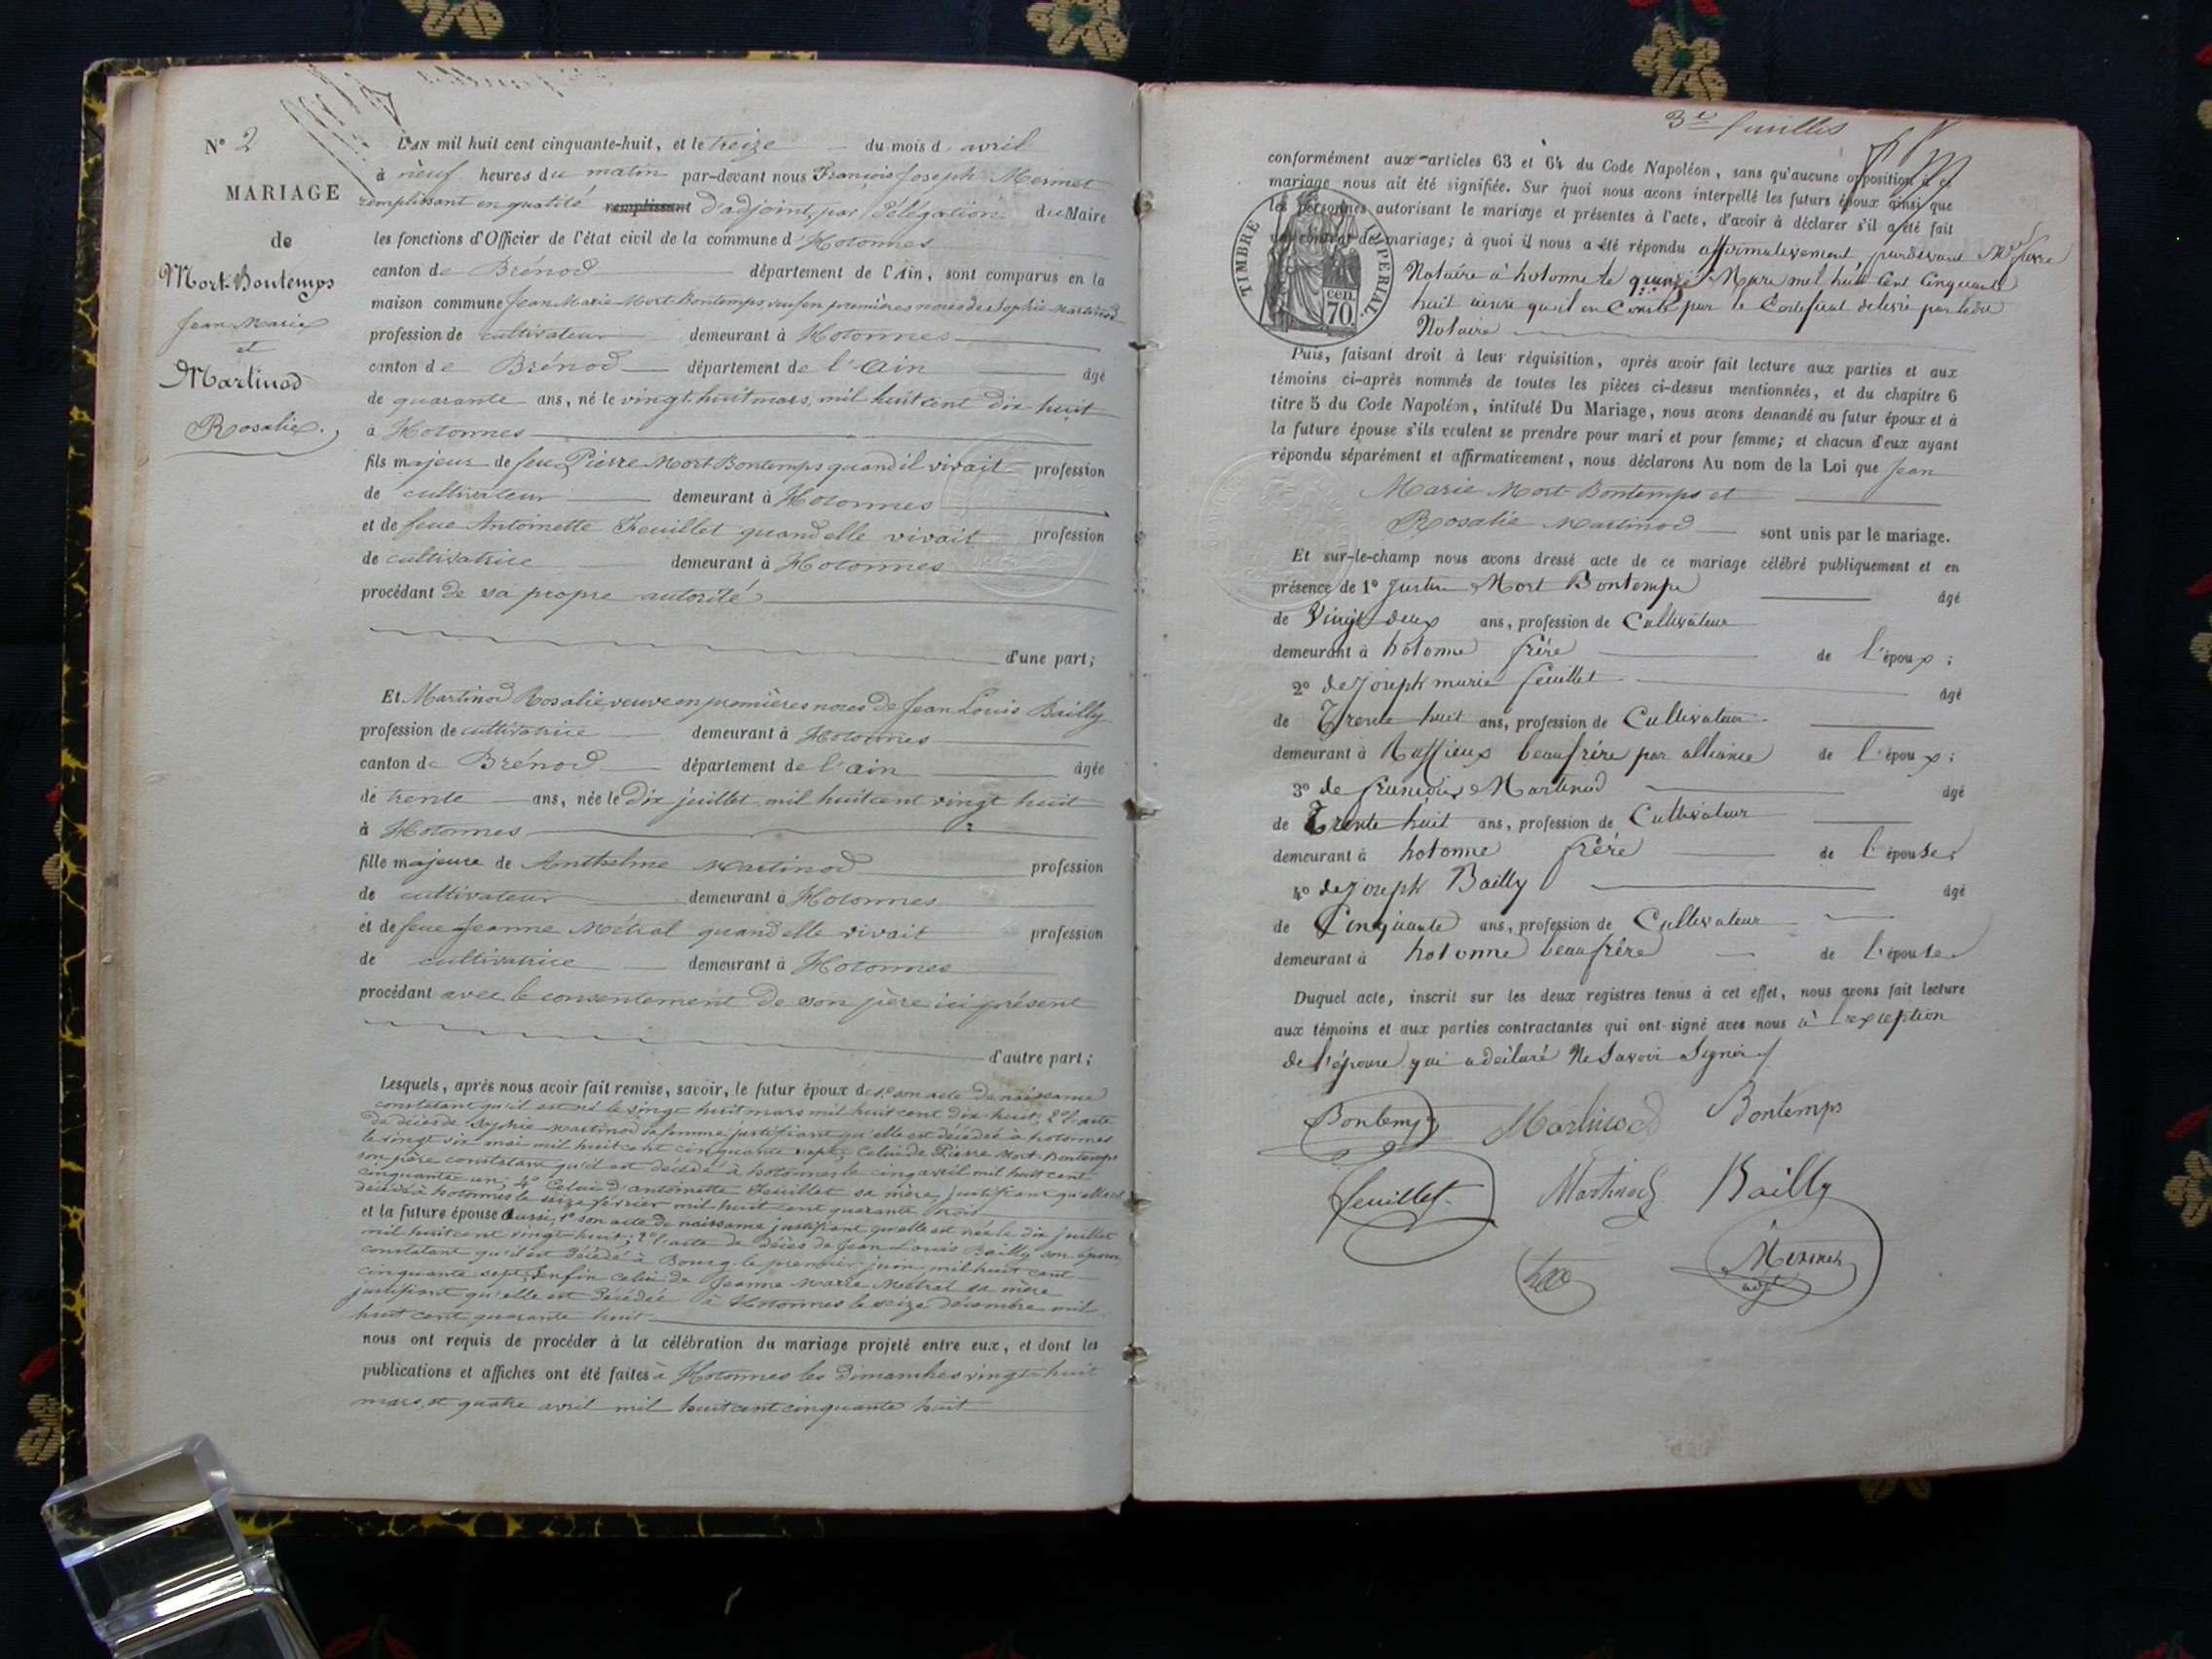 N° 2
MARIAGE
de
Mort-Bontemps
Jean Marie
et
Martinod
Rosalie.
L'AN mil huit cent cinquante-huit, et le treize du mois d avril
à neuf heures du matin par-devant nous François Joseph Mermet
remplissant en qualité remplissant d'adjoint, par délégation du Maire
les fonctions d'Officier de l'état civil de la commune d Hotonnes
canton de Brénod département de l'Ain, sont comparus en la
maison commune Jean Marie Mort-Bontemps veuf en premières noces de Sophie Martinod
profession de cultivateur demeurant à Hotonnes
canton de Brénod département de l'Ain âgé
de quarante ans, né le vingt huit mars, mil huit cent dix huit
à Hotonnes
fils majeur de feu Pierre Mort Bontemps quand il vivait profession
de cultivateur demeurant à Hotonnes
et de feue Antoinette Feuillet quand elle vivait profession
de cultivatrice demeurant à Hotonnes
procédant de sa propre autorité
d'une part;
Et Martinod Rosalie, veuve en premières noces de Jean Louis Bailly
profession de cultivatrice demeurant à Hotonnes
canton de Brénod département de l'ain âgée
de trente ans, née le dix juillet mil huit cent vingt huit
à Hotonnes
fille majeure de Anthelme Martinod profession
de cultivateur demeurant à Hotonnes
et de feue Jeanne Métral quand elle vivait profession
de cultivatrice demeurant à Hotonnes
procédant avec le consentement de son père ici présent
d'autre part;
Lesquels, après nous avoir fait remise, savoir, le futur époux de 1° son acte de naissance
constatant qu'il est né le vingt huit mars mil huit cent dix huit; 2° l'acte
de décès de Sophie Martinod sa femme justifiant qu'elle est décédée à hotonnes
le vingt six mai mil huit cent cinquante sept; celui de Pierre Mort-Bontemps
son père constatant qu'il est décédé à hotonnes le cinq avril mil huit cent
cinquante un; 4° Celui d'antoinette Feuillet sa mère, justifiant qu'elle est
décédée à hotonnes le seize février mil huit cent quarante trois
et la future épouse aussi, 1° son acte de naissance justifiant qu'elle est née le dix juillet
mil huit cent vingt huit; 2° l'acte de décès de Jean Louis Bailly son époux
constatant qu'il est décédé à Bourg le premier juin mil huit cent
cinquante sept; enfin celui de Jeanne Marie Métral sa mère
justifiant qu'elle est décédée à Hotonnes le seize décembre mil
huit cent quarante huit
nous ont requis de procéder à la célébration du mariage projeté entre eux, et dont les
publications et affiches ont été faites à Hotonnes les dimanches vingt huit
mars, et quatre avril mil huit cent cinquante huit
3e feuilles
conformément aux articles 63 et 64 du Code Napoléon, sans qu'aucune opposition à ce
mariage nous ait été signifiée. Sur quoi nous avons interpellé les futurs époux ainsi que
les personnes autorisant le mariage et présentes à l'acte, d'avoir à déclarer s'il a été fait
un contrat de mariage; à quoi il nous a été répondu affirmativement, pardevant Me
Notaire à hotonne le quinze Mars mil huit Cent Cinquante
huit ainsi qu'il en Conste par le Certificat délivré par ledit
Notaire
TIMBRE IMPERIAL
70 cen.
Puis, faisant droit à leur réquisition, après avoir fait lecture aux parties et aux
témoins ci-après nommés de toutes les pièces ci-dessus mentionnées, et du chapitre 6
titre 5 du Code Napoléon, intitulé Du Mariage, nous avons demandé au futur époux et à
la future épouse s'ils veulent se prendre pour mari et pour femme; et chacun d'eux ayant
répondu séparément et affirmativement, nous déclarons Au nom de la Loi que Jean
Marie Mort-Bontemps et
Rosalie Martinod sont unis par le mariage.
Et sur-le-champ nous avons dressé acte de ce mariage célébré publiquement et en
présence de 1° Justin Mort Bontemps âgé
de Vingt deux ans, profession de Cultivateur
demeurant à hotonne frère de l'époux;
2° de Joseph marie feuillet âgé
de Trente huit ans, profession de Cultivateur
demeurant à Ruffieux beaufrère par alliance de l'époux;
3° de françois Martinod âgé
de Trente huit ans, profession de Cultivateur
demeurant à hotonne frère de l'épouse;
4° de Joseph Bailly âgé
de Cinquante ans, profession de Cultivateur
demeurant à hotonne beaufrère de l'épouse
Duquel acte, inscrit sur les deux registres tenus à cet effet, nous avons fait lecture
aux témoins et aux parties contractantes qui ont signé avec nous à l'exception
de l'épouse qui a déclaré Ne Savoir Signer
Bontemps Martinod Bontemps
feuillet Martinod Bailly
Mermet
adjt